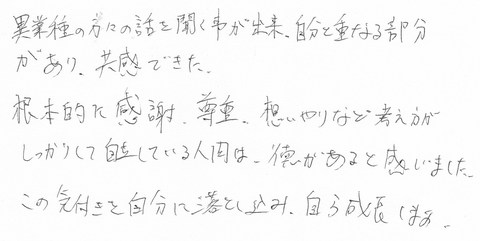 異業種の方々の話を聞く事が出来、自分と重なる部分
があり、共感できた。
根本的な感謝、尊重、想いやりなど考え方が
しっかりして自立している人間は、徳があると感じました。
この気付きを自分に落とし込み、自ら成長します。